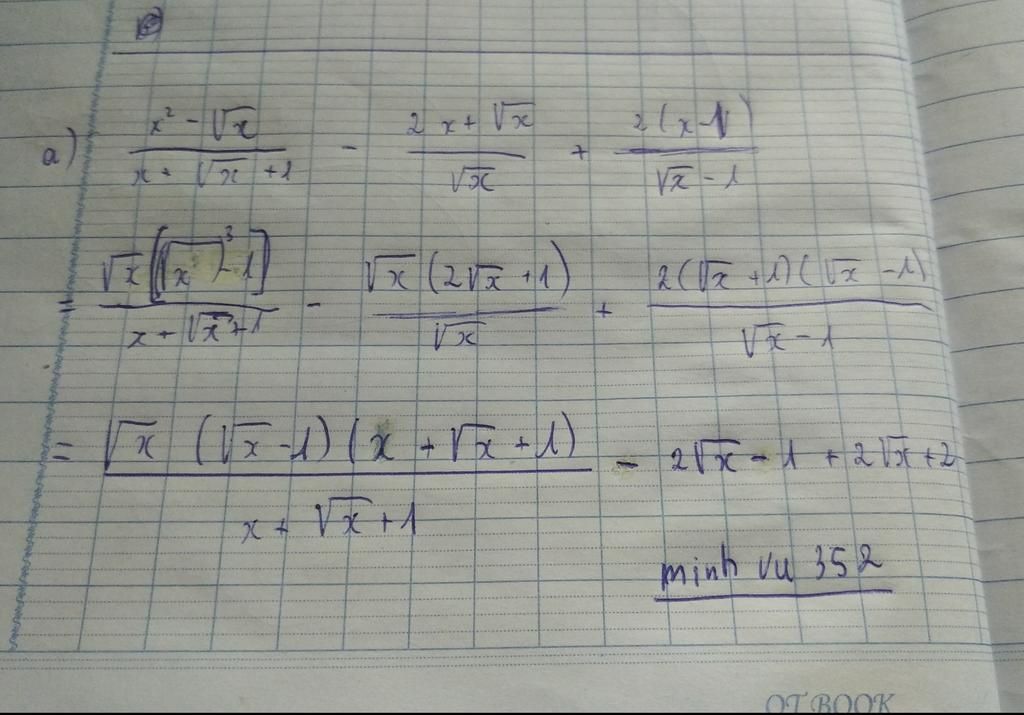 a) (x² - √x)/(x + √x + 1) - (2x + √x)/√x + 2(x-1)/(√x - 1)
= √x[(√x)³ - 1]/(x + √x + 1) - √x(2√x + 1)/√x + 2(√x + 1)(√x - 1)/(√x - 1)
= √x (√x - 1)(x + √x + 1)/(x + √x + 1) - 2√x - 1 + 2√x + 2
minh vu 352
OT BOOK